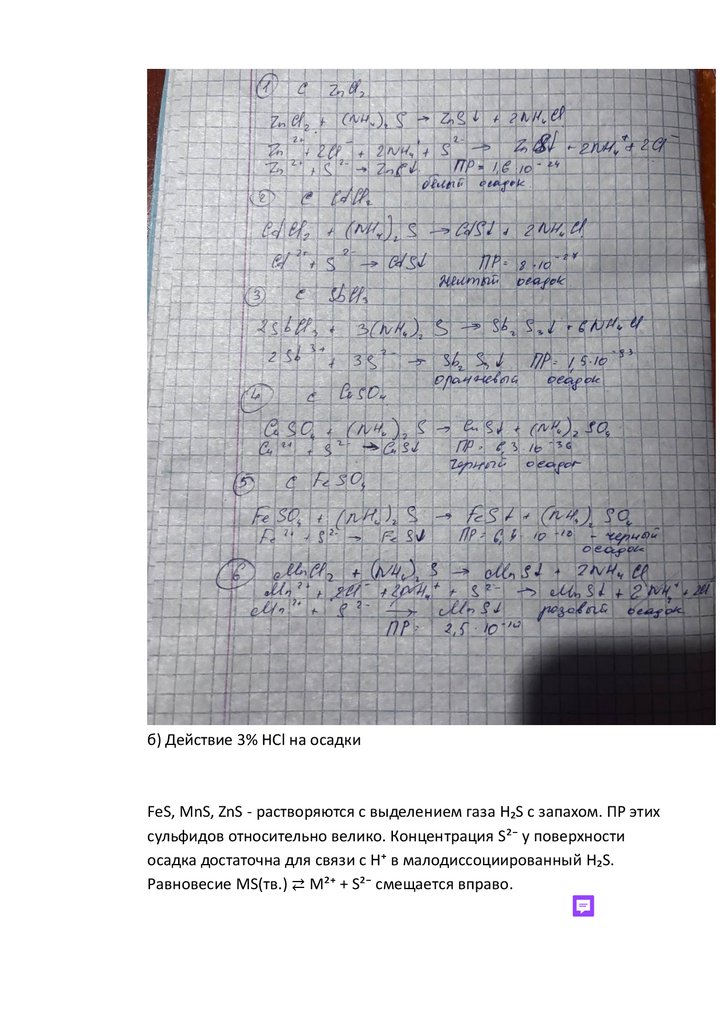 ① с ZnCl₂
ZnCl₂ + (NH₄)₂ S → ZnS↓ + 2NH₄Cl
Zn²⁺ + 2Cl⁻ + 2NH₄⁺ + S²⁻ → ZnS↓ + 2NH₄⁺ + 2Cl⁻
Zn²⁺ + S²⁻ → ZnS↓ ПР = 1,6 · 10⁻²⁴
белый осадок
② с CdCl₂
CdCl₂ + (NH₄)₂ S → CdS↓ + 2NH₄Cl
Cd²⁺ + S²⁻ → CdS↓ ПР = 8 · 10⁻²⁷
желтый осадок
③ с SbCl₃
2SbCl₃ + 3(NH₄)₂ S → Sb₂S₃↓ + 6NH₄Cl
2Sb³⁺ + 3S²⁻ → Sb₂S₃↓ ПР = 1,5·10⁻⁹³
оранжевый осадок
④ с CuSO₄
CuSO₄ + (NH₄)₂ S → CuS↓ + (NH₄)₂ SO₄
Cu²⁺ + S²⁻ → CuS↓ ПР = 6,3 · 10⁻³⁶
черный осадок
⑤ с FeSO₄
FeSO₄ + (NH₄)₂ S → FeS↓ + (NH₄)₂ SO₄
Fe²⁺ + S²⁻ → FeS↓ ПР = · 10⁻¹⁸ - черный
осадок
⑥ MnCl₂ + (NH₄)₂ S → MnS↓ + 2NH₄Cl
Mn²⁺ + 2Cl⁻ + 2NH₄⁺ + S²⁻ → MnS↓ + 2NH₄⁺ + 2Cl⁻
Mn²⁺ + S²⁻ → MnS↓ розовый осадок
ПР = 2,5 · 10⁻¹⁰
б) Действие 3% HCl на осадки
FeS, MnS, ZnS - растворяются с выделением газа H₂S с запахом. ПР этих
сульфидов относительно велико. Концентрация S²⁻ у поверхности
осадка достаточна для связи с H⁺ в малодиссоциированный H₂S.
Равновесие MS(тв.) ⇄ M²⁺ + S²⁻ смещается вправо.